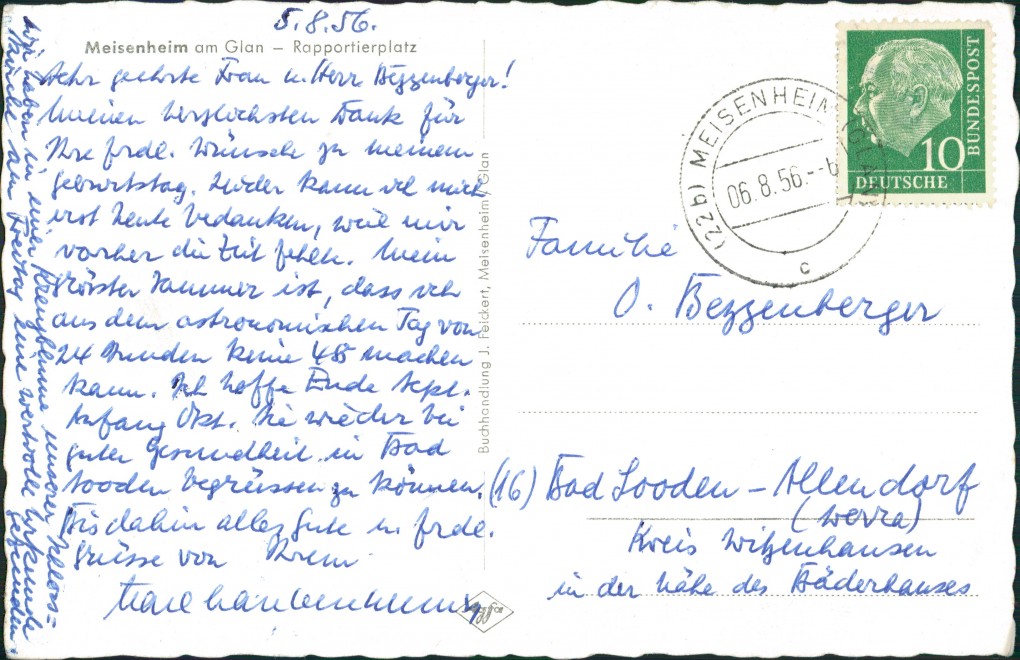 5.8.56.
Meisenheim am Glan – Rapportierplatz
Sehr geehrte Frau u. Herr Bezzenberger!
Meinen herzlichsten Dank für
Ihre frdl. Wünsche zu meinem
Geburtstag. Leider kann ich mich
erst heute bedanken, weil mir
vorher die Zeit fehlte. Mein
grösster Jammer ist, dass ich
aus dem astronomischen Tag von
24 Stunden keine 48 machen
kann. Ich hoffe Ende Sept.
Anfang Okt. Sie wieder bei
guter Gesundheit in Bad
Sooden begrüssen zu können.
Bis dahin alles Gute u. frdl.
Grüsse von Ihrem
Karl
Wir haben in einer unserer Schloss=
kirche am Freitag eine wertvolle Urkunde gefunden.
Buchhandlung J. Feickert, Meisenheim/Glan
Agfa
DEUTSCHE
BUNDESPOST
10
(22b) MEISENHEIM (GLAN)
06.8.56.--6
c
Familie
O. Bezzenberger
(16) Bad Sooden – Allendorf
(Werra)
Kreis Witzenhausen
in der Nähe des Bäderhauses